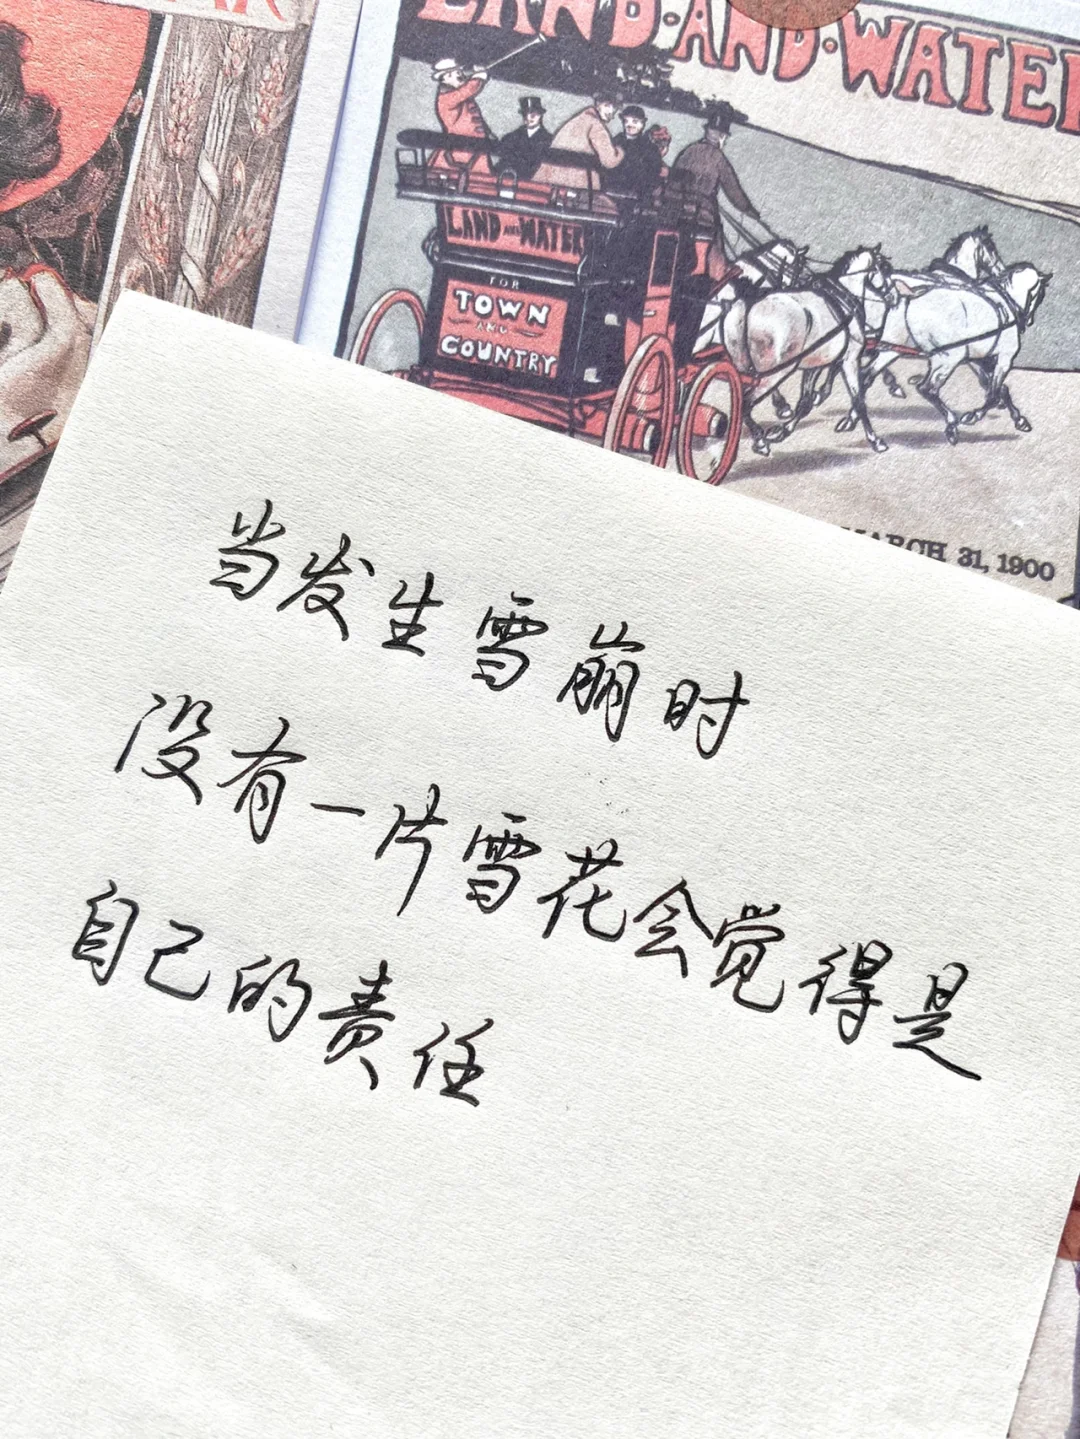 LAND·AND·WATER
LAND AND WATER
FOR
TOWN
AND
COUNTRY
MARCH 31, 1900
当发生雪崩时
没有一片雪花会觉得是
自己的责任